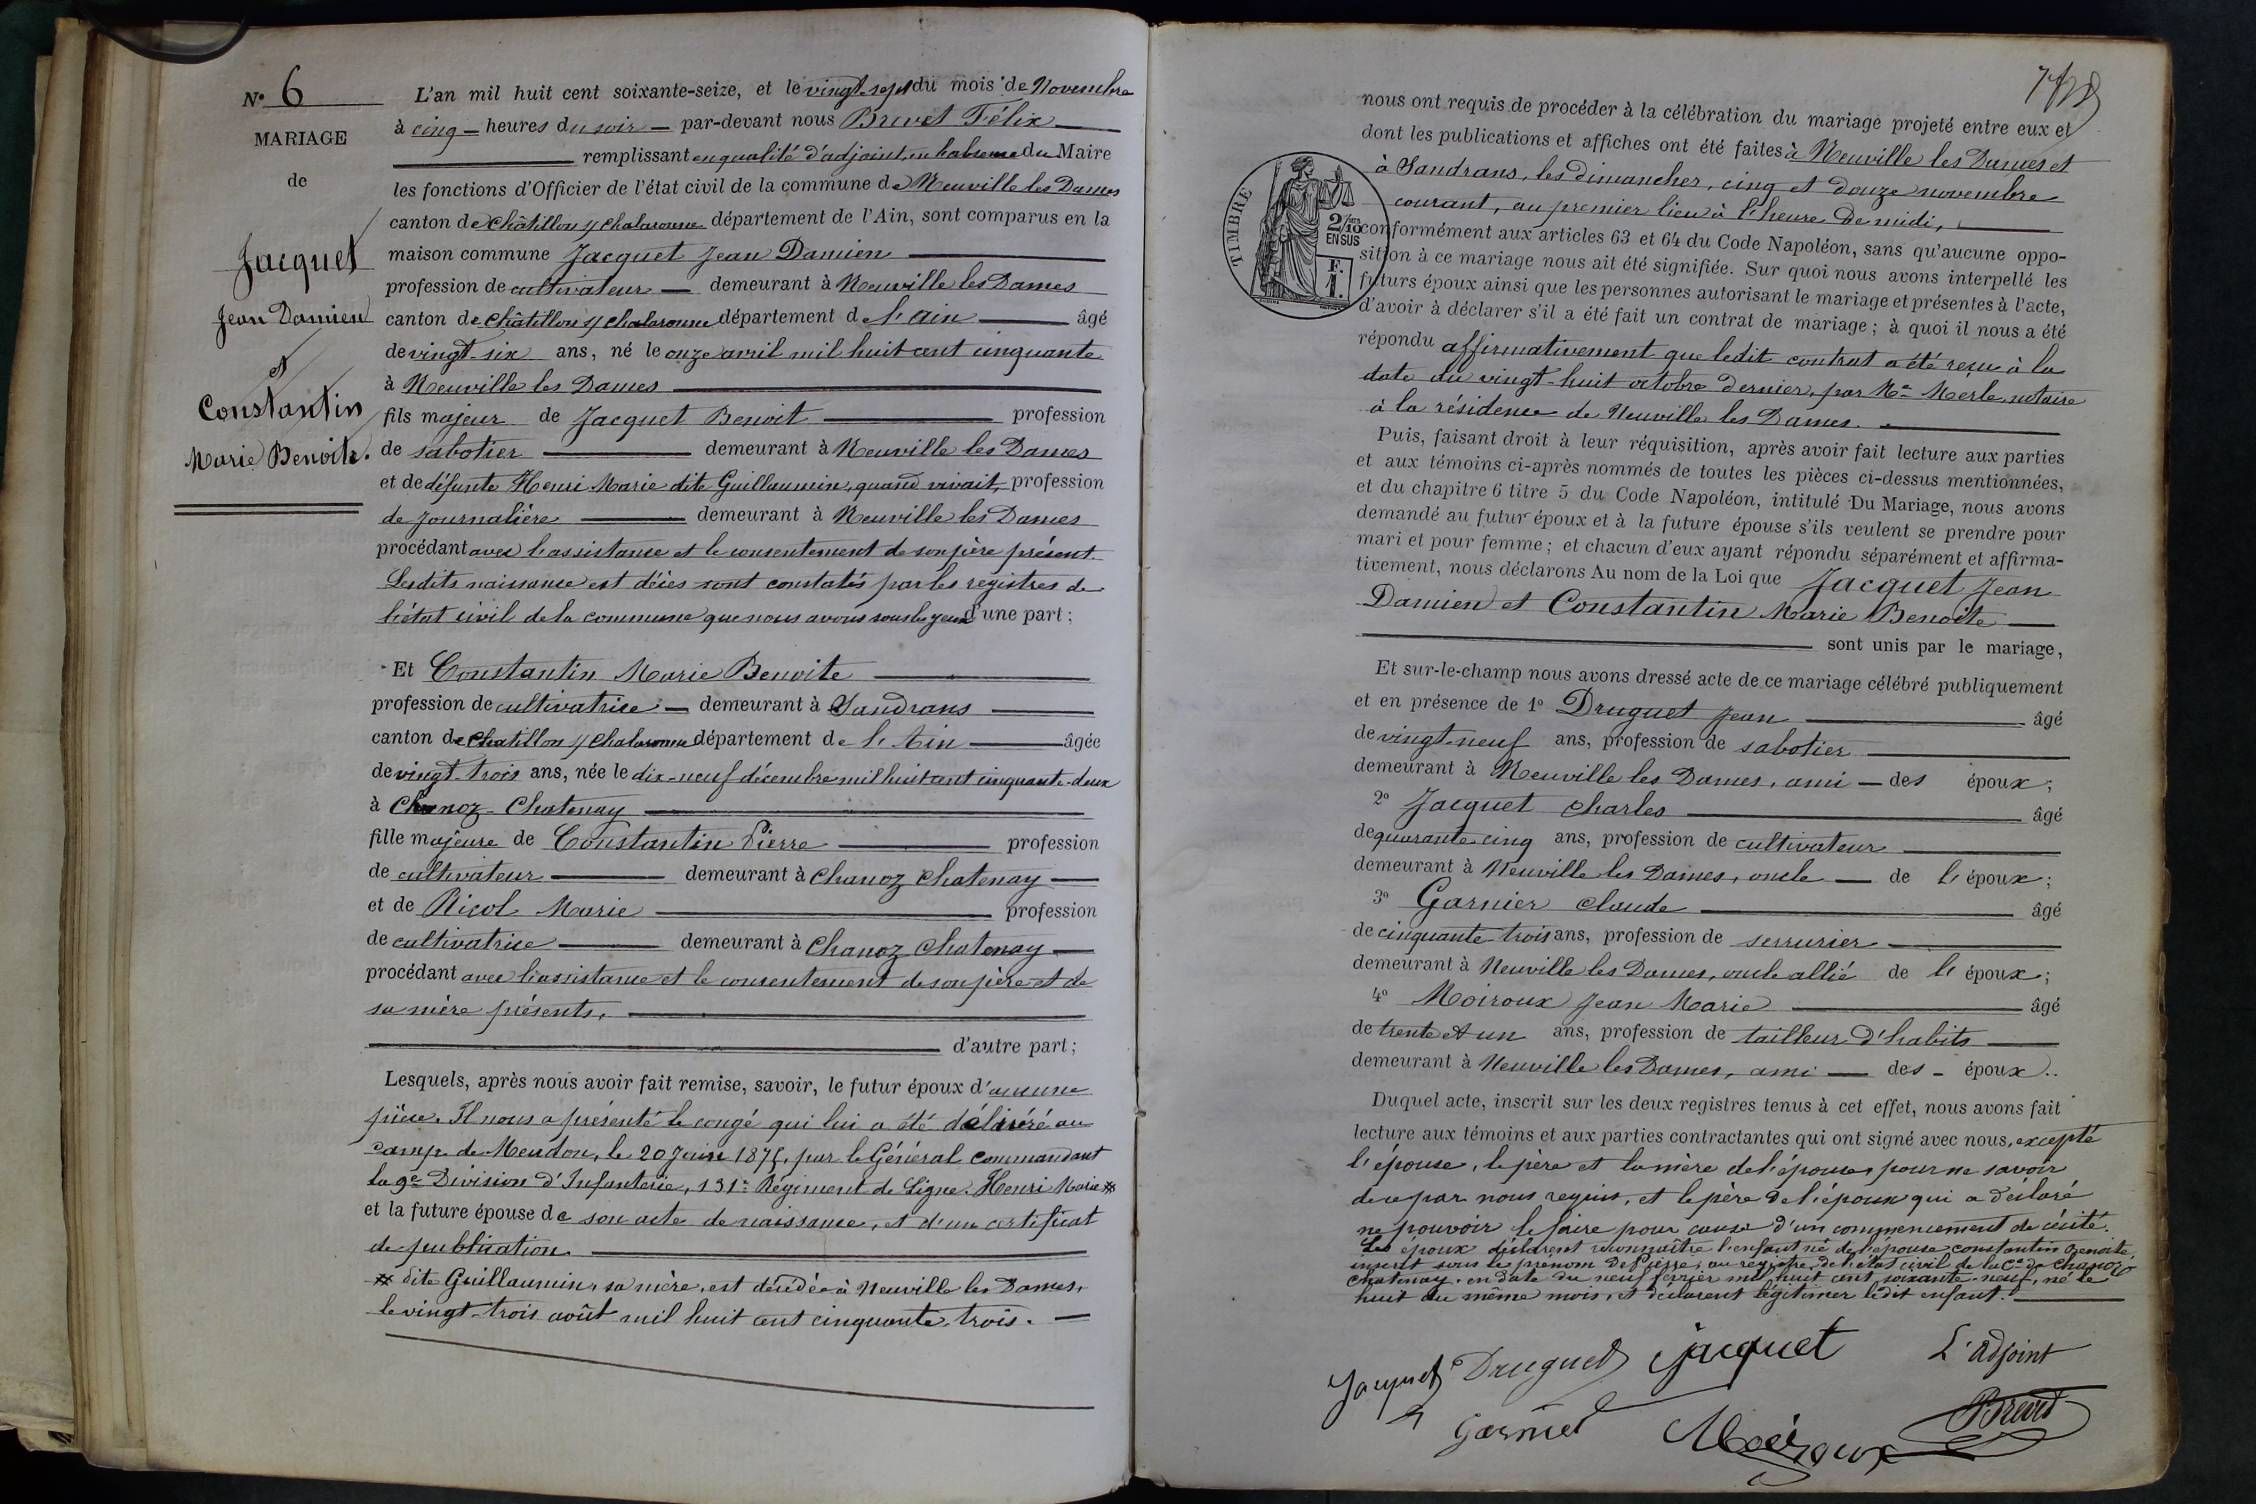 N° 6
MARIAGE
de
Jacquet
Jean Damien
et
Constantin
Marie Benoite.
L'an mil huit cent soixante-seize, et le vingt-sept du mois de Novembre
à cinq heures du soir par-devant nous Brevet Félix
remplissant en qualité d'adjoint, en l'absence du Maire
les fonctions d'Officier de l'état civil de la commune de Neuville les Dames
canton de Châtillon s/ Chalaronne département de l'Ain, sont comparus en la
maison commune Jacquet Jean Damien
profession de cultivateur demeurant à Neuville les Dames
canton de Châtillon s/ Chalaronne département de l'Ain âgé
de vingt-six ans, né le onze avril mil huit cent cinquante
à Neuville les Dames
fils majeur de Jacquet Benoit profession
de sabotier demeurant à Neuville les Dames
et de défunte Henri Marie dite Guillaumin, quand vivait, profession
de journalière demeurant à Neuville les Dames
procédant avec l'assistance et le consentement de son père présent.
Lesdits naissance et décès sont constatés par les registres de
l'état civil de la commune que nous avons sous les yeux d'une part ;
Et Constantin Marie Benoite
profession de cultivatrice demeurant à Sandrans
canton de Chatillon s/ Chalaronne département de l'Ain âgée
de vingt-trois ans, née le dix-neuf décembre mil huit cent cinquante-deux
à Chanoz-Chatenay
fille majeure de Constantin Pierre profession
de cultivateur demeurant à Chanoz Chatenay
et de Nicol Marie profession
de cultivatrice demeurant à Chanoz Chatenay
procédant avec l'assistance et le consentement de son père et de
sa mère présents.
d'autre part ;
Lesquels, après nous avoir fait remise, savoir, le futur époux d'aucune
pièce. Il nous a présenté le congé qui lui a été délivré au
camp de Meudon, le 20 Juin 1875, par le Général Commandant
la 9e Division d'Infanterie, 131e Régiment de Ligne. Henri Marie #
et la future épouse de son acte de naissance, et d'un certificat
de publication.
# dite Guillaumin, sa mère, est décédée à Neuville les Dames,
le vingt-trois août mil huit cent cinquante-trois.
nous ont requis de procéder à la célébration du mariage projeté entre eux et
dont les publications et affiches ont été faites à Neuville les Dames et
à Sandrans, les dimanches, cinq et douze novembre
courant, au premier lieu à l'heure de midi,
TIMBRE
2/10 EN SUS
F. 1.
conformément aux articles 63 et 64 du Code Napoléon, sans qu'aucune oppo-
sition à ce mariage nous ait été signifiée. Sur quoi nous avons interpellé les
futurs époux ainsi que les personnes autorisant le mariage et présentes à l'acte,
d'avoir à déclarer s'il a été fait un contrat de mariage ; à quoi il nous a été
répondu affirmativement que ledit contrat a été reçu à la
date du vingt-huit octobre dernier, par Me Merle, notaire
à la résidence de Neuville les Dames.
Puis, faisant droit à leur réquisition, après avoir fait lecture aux parties
et aux témoins ci-après nommés de toutes les pièces ci-dessus mentionnées,
et du chapitre 6 titre 5 du Code Napoléon, intitulé Du Mariage, nous avons
demandé au futur époux et à la future épouse s'ils veulent se prendre pour
mari et pour femme ; et chacun d'eux ayant répondu séparément et affirma-
tivement, nous déclarons Au nom de la Loi que Jacquet Jean
Damien et Constantin Marie Benoite
sont unis par le mariage,
Et sur-le-champ nous avons dressé acte de ce mariage célébré publiquement
et en présence de 1° Druguet Jean âgé
de vingt-neuf ans, profession de sabotier
demeurant à Neuville les Dames, ami des époux ;
2° Jacquet Charles âgé
de quarante cinq ans, profession de cultivateur
demeurant à Neuville les Dames, oncle de l'époux ;
3° Garnier Claude âgé
de cinquante-trois ans, profession de serrurier
demeurant à Neuville les Dames, oncle allié de l'époux ;
4° Moiroux Jean Marie âgé
de trente et un ans, profession de tailleur d'habits
demeurant à Neuville les Dames, ami des époux.
Duquel acte, inscrit sur les deux registres tenus à cet effet, nous avons fait
lecture aux témoins et aux parties contractantes qui ont signé avec nous, excepté
l'épouse, le père et la mère de l'épouse, pour ne savoir
de ce par nous requis, et le père de l'époux qui a déclaré
ne pouvoir le faire pour cause d'un commencement de cécité.
Les époux déclarent reconnaître l'enfant né de l'épouse Constantin Benoite,
inscrit sous le prénom de Pierre, au registre de l'état civil de la Cne de Chanoz
Chatenay, en date du neuf février mil huit cent soixante-neuf, né le
huit du même mois, et déclarent légitimer ledit enfant.
Jacquet Druguet Jacquet L'adjoint
Garnier Moiroux Brevet